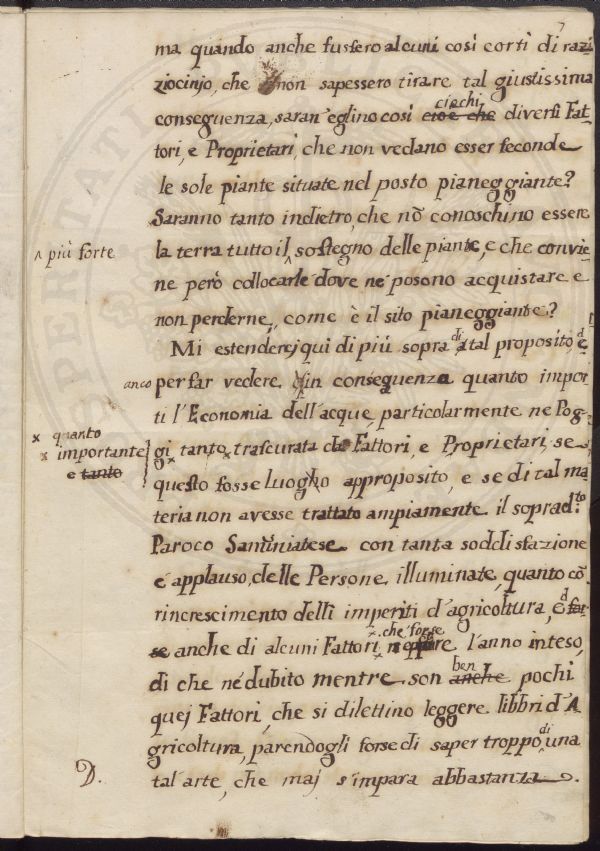 7
ma quando anche fussero alcuni così corti di razi
ziocinjo, che non sapessero tirare tal giustissima
ciechi
conseguenza, saran' eglino così cioè che diversi Fat-
tori, e Proprietari, che non vedano esser feconde
le sole piante situate nel posto pianeggiante?
Saranno tanto indietro, che nō conoschino essere
^ più forte
la terra tutto il ^ sostegno delle piante, e che convie-
ne però collocarle dove ne posono acquistare e
non perderne, come è il sito pianeggiante?
Mi estenderej qui di più sopra di tal proposito, ed
anco per far vedere in conseguenza quanto impor-
ti l'Economia dell'acque, particolarmente ne Pog-
x quanto
x importante
e tanto
gi x tanto x trascurata da Fattori, e Proprietari, se
questo fosse luogho approposito, e se di tal ma
teria non avesse trattato ampiamente il soprad.to
Paroco Sanminiatese con tanta soddisfazione
e applauso, delle Persone illuminate, quanto cō
rincrescimento delli imperiti d'agricoltura, ed for-
x che forse
se anche di alcuni Fattori, x neppure l'anno inteso,
ben
di che ne dubito mentre son anche pochi
quej Fattori, che si dilettino leggere libbri d'A
di
gricoltura, parendogli forse di saper troppo, una
D.
tal'arte, che maj s'impara abbastanza.